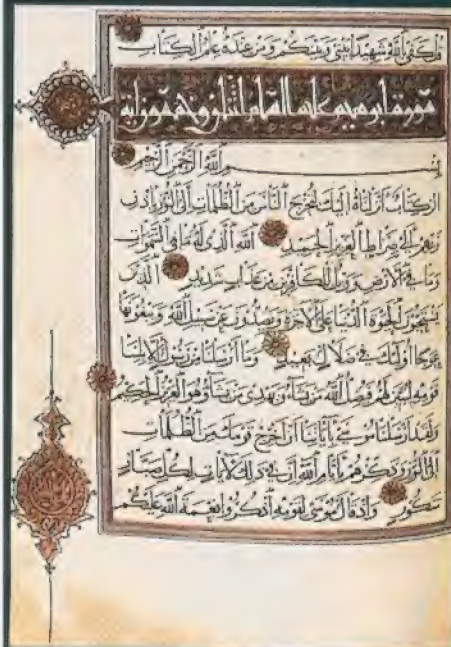 قل كفى بالله شهيدا بيني وبينكم ومن عنده علم الكتاب
سورة ابرهيم عليه السلام اثنان وخمسون اية
بسم الله الرحمن الرحيم
الر كتاب أنزلناه إليك لتخرج الناس من الظلمات إلى النور بإذن
ربهم إلى صراط العزيز الحميد الله الذي له ما في السموات
وما في الأرض وويل للكافرين من عذاب شديد الذين
يستحبون الحيوة الدنيا على الآخرة ويصدون عن سبيل الله ويبغونها
عوجا أولئك في ضلال بعيد وما أرسلنا من رسول إلا بلسان
قومه ليبين لهم فيضل الله من يشاء ويهدي من يشاء وهو العزيز الحكيم
ولقد أرسلنا موسى بآياتنا أن أخرج قومك من الظلمات
إلى النور وذكرهم بأيام الله إن في ذلك لآيات لكل صبار
شكور وإذ قال موسى لقومه أذكروا نعمة الله عليكم